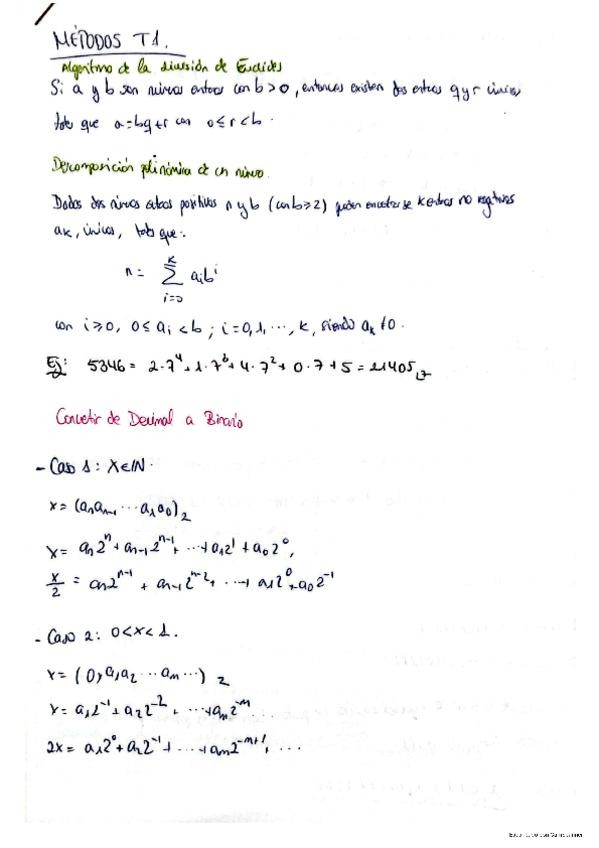 MÉTODOS T1.
Algoritmo de la división de Euclides
Si a y b son números enteros con b>0, entonces existen dos enteros q y r únicos
tales que a=bq+r con 0≤r<b.
Descomposición polinómica de un número.
Dados dos números enteros positivos n y b (con b≥2) pueden encontrarse k enteros no negativos
ak, únicos, tales que:
n = ∑_{i=0}^{k} aᵢbⁱ
con i≥0, 0≤aᵢ<b; i=0,1,...,k, siendo aₖ≠0.
Ej: 5346 = 2·7⁴+1·7³+4·7²+0·7+5 = 21405,₇
Convertir de Decimal a Binario
- Caso 1: X∈ℕ.
x=(aₙaₙ₋₁...a₁a₀)₂
x= aₙ2ⁿ+aₙ₋₁2ⁿ⁻¹+...+a₁2¹+a₀2⁰,
x/2 = aₙ2ⁿ⁻¹+aₙ₋₁2ⁿ⁻²+...+a₁2⁰+a₀2⁻¹
- Caso 2: 0<x<1.
x=(0,a₁a₂...aₘ...)₂
x=a₁2⁻¹+a₂2⁻²+...+aₘ2⁻ᵐ
2x= a₁2⁰+a₂2⁻¹+...+aₘ2⁻ᵐ⁺¹+...